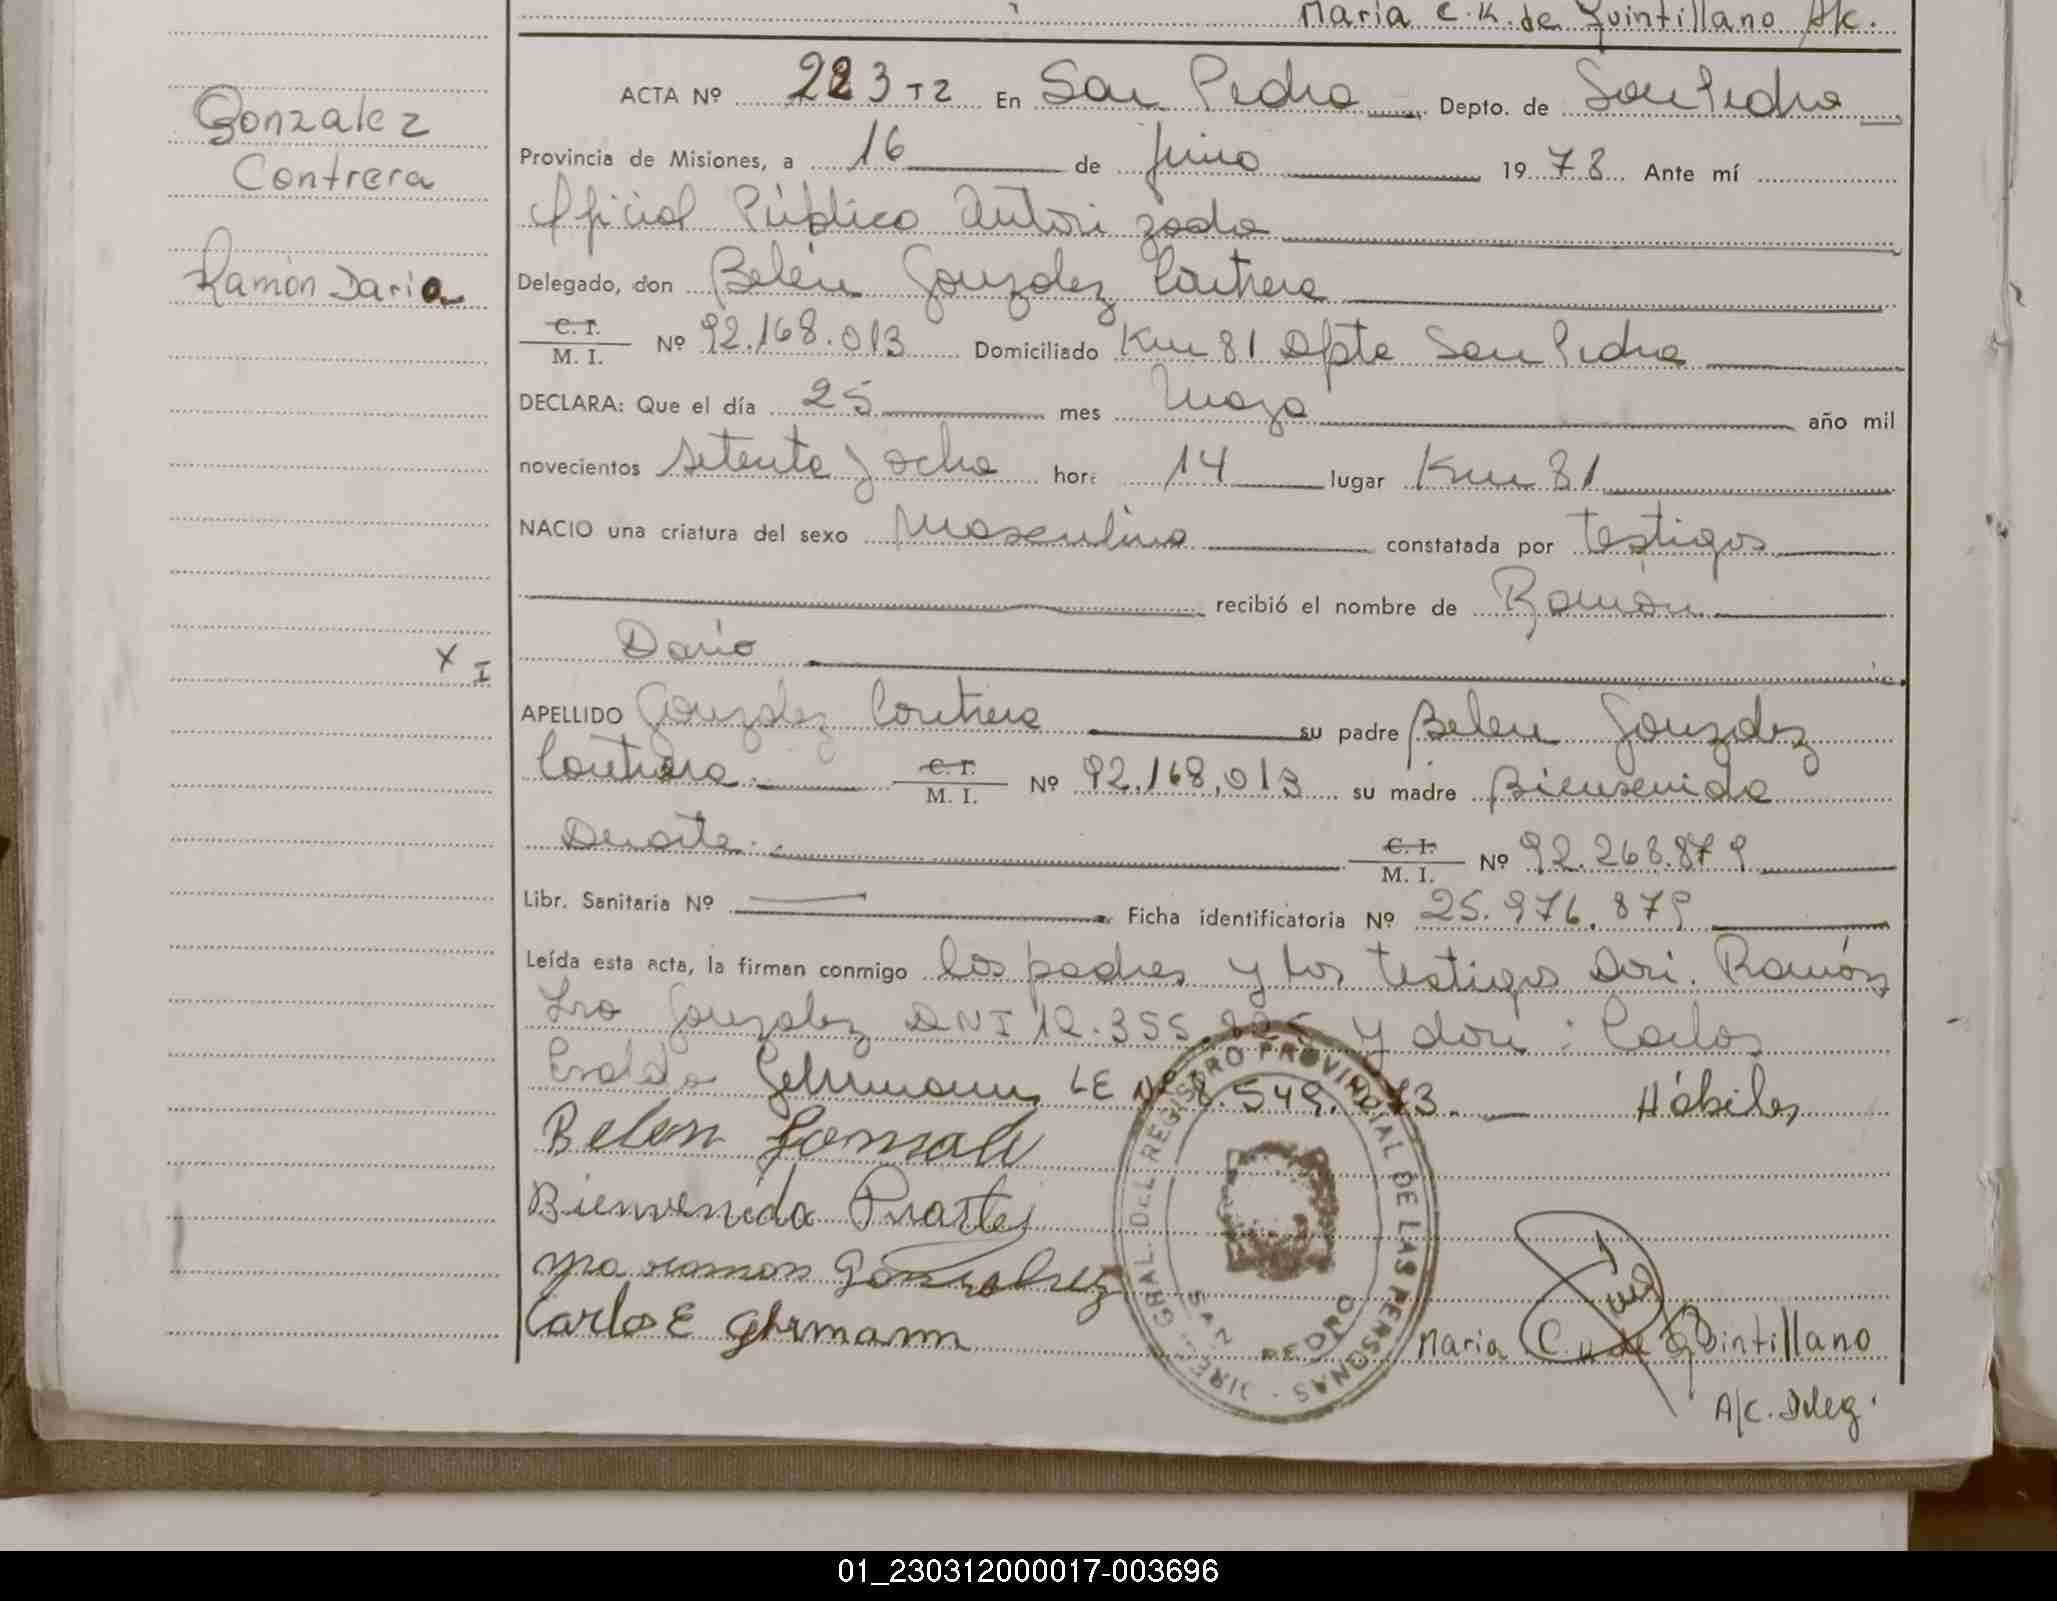 Maria C.K. de Quintillano A/c.
Gonzalez
Contrera
Ramón Dario
X I
ACTA Nº 223 T2 En San Pedro Depto. de San Pedro
Provincia de Misiones, a 16 de junio 1978 Ante mí
Oficial Público Autorizado
Delegado, don Belén Gonzalez Contrera
C. I. / M. I. Nº 92.168.013 Domiciliado Km 81 Dpto San Pedro
DECLARA: Que el día 25 mes Mayo año mil
novecientos setenta y ocho hora 14 lugar Km 81
NACIO una criatura del sexo Masculino constatada por testigos
recibió el nombre de Ramón
Dario
APELLIDO Gonzalez Contrera su padre Belen Gonzalez
Contrera C. I. / M. I. Nº 92.168.013 su madre Bienvenida
Duarte C. I. / M. I. Nº 92.268.879
Libr. Sanitaria Nº Ficha identificatoria Nº 25.976.879
Leída esta acta, la firman conmigo los padres y los testigos don: Ramón
Gonzalez DNI 12.355. y don: Carlos
Gehrmann LE Nº 8.549. Hábiles
Belen Gonsale
Bienvenida Duarte
ramon Gonzalez
Carlos E Ghrmann
DIREC. GRAL. DEL REGISTRO PROVINCIAL DE LAS PERSONAS
SAN PEDRO
Maria C. K. de Quintillano
A/C. Deleg.
01_230312000017-003696